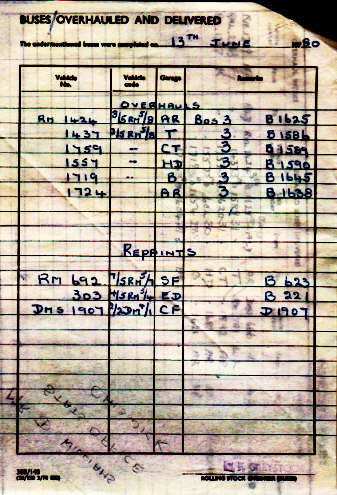 BUSES OVERHAULED AND DELIVERED
The undermentioned buses were completed on 13TH JUNE 1980
Vehicle No. Vehicle code Garage Remarks
OVERHAULS
RM 1424 3/5RM5/8 AR BOS 3 B1625
1437 3/5RM5/8 T 3 B1586
1759 — CT 3 B1589
1557 — HD 3 B1590
1719 — B 3 B1645
1724 AR 3 B1638
REPRINTS
RM 692 7/5RM5/7 SF B 623
303 4/5RM5/4 ED B 221
DMS 1907 2/2DM4/1 CF D1907
MR T. WILLIAMS
STATS OFFICE
CHISWICK
ROLLING STOCK ENGINEER (BUSES)